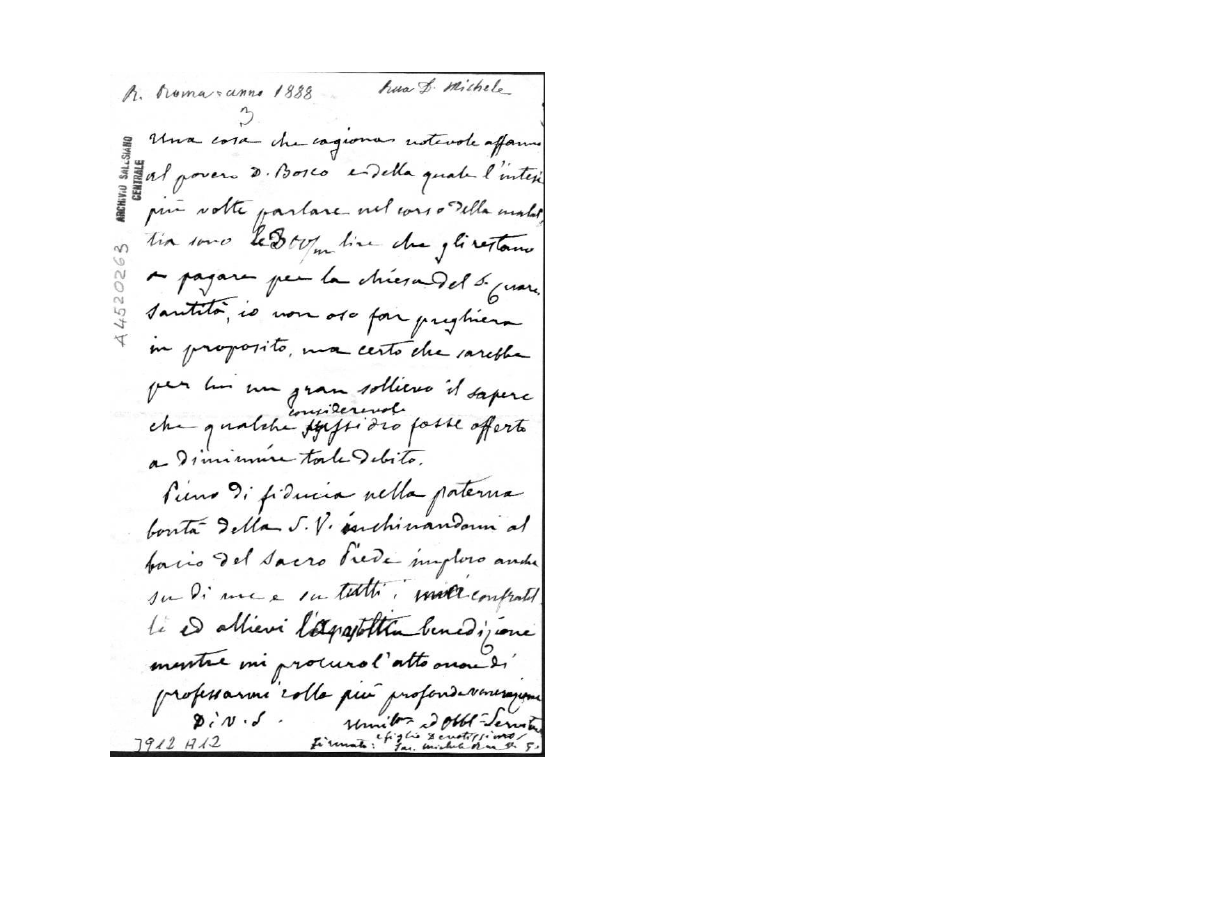 R. Roma = anno 1888
Rua D. Michele
3
ARCHIVIO SALESIANO
CENTRALE
A4520263
Una cosa che cagiona notevole affanno
al povero D. Bosco e della quale l'intesi
più volte parlare nel corso della malat,
tia sono le lire che gli restano
a pagare per la chiesa del S. Cuore.
Santità, io non oso far preghiera
in proposito, ma certo che sarebbe
per lui un gran sollievo il sapere
considerevole
che qualche sussidio fosse offerto
a diminuire tale debito.
Pieno di fiducia nella paterna
bontà della S. V. inchinandomi al
bacio del Sacro Piede imploro anche
su di me e su tutti i miei confratel
li ed allievi l'apostolica benedizione
mentre mi procuro l'alto onore di
professarmi colla più profonda venerazione
Di V. S.
Umil.mo ed Obbl. Servitore
e figlio Devotissimo
Firmato: Sac. Michele Rua
3912 A12